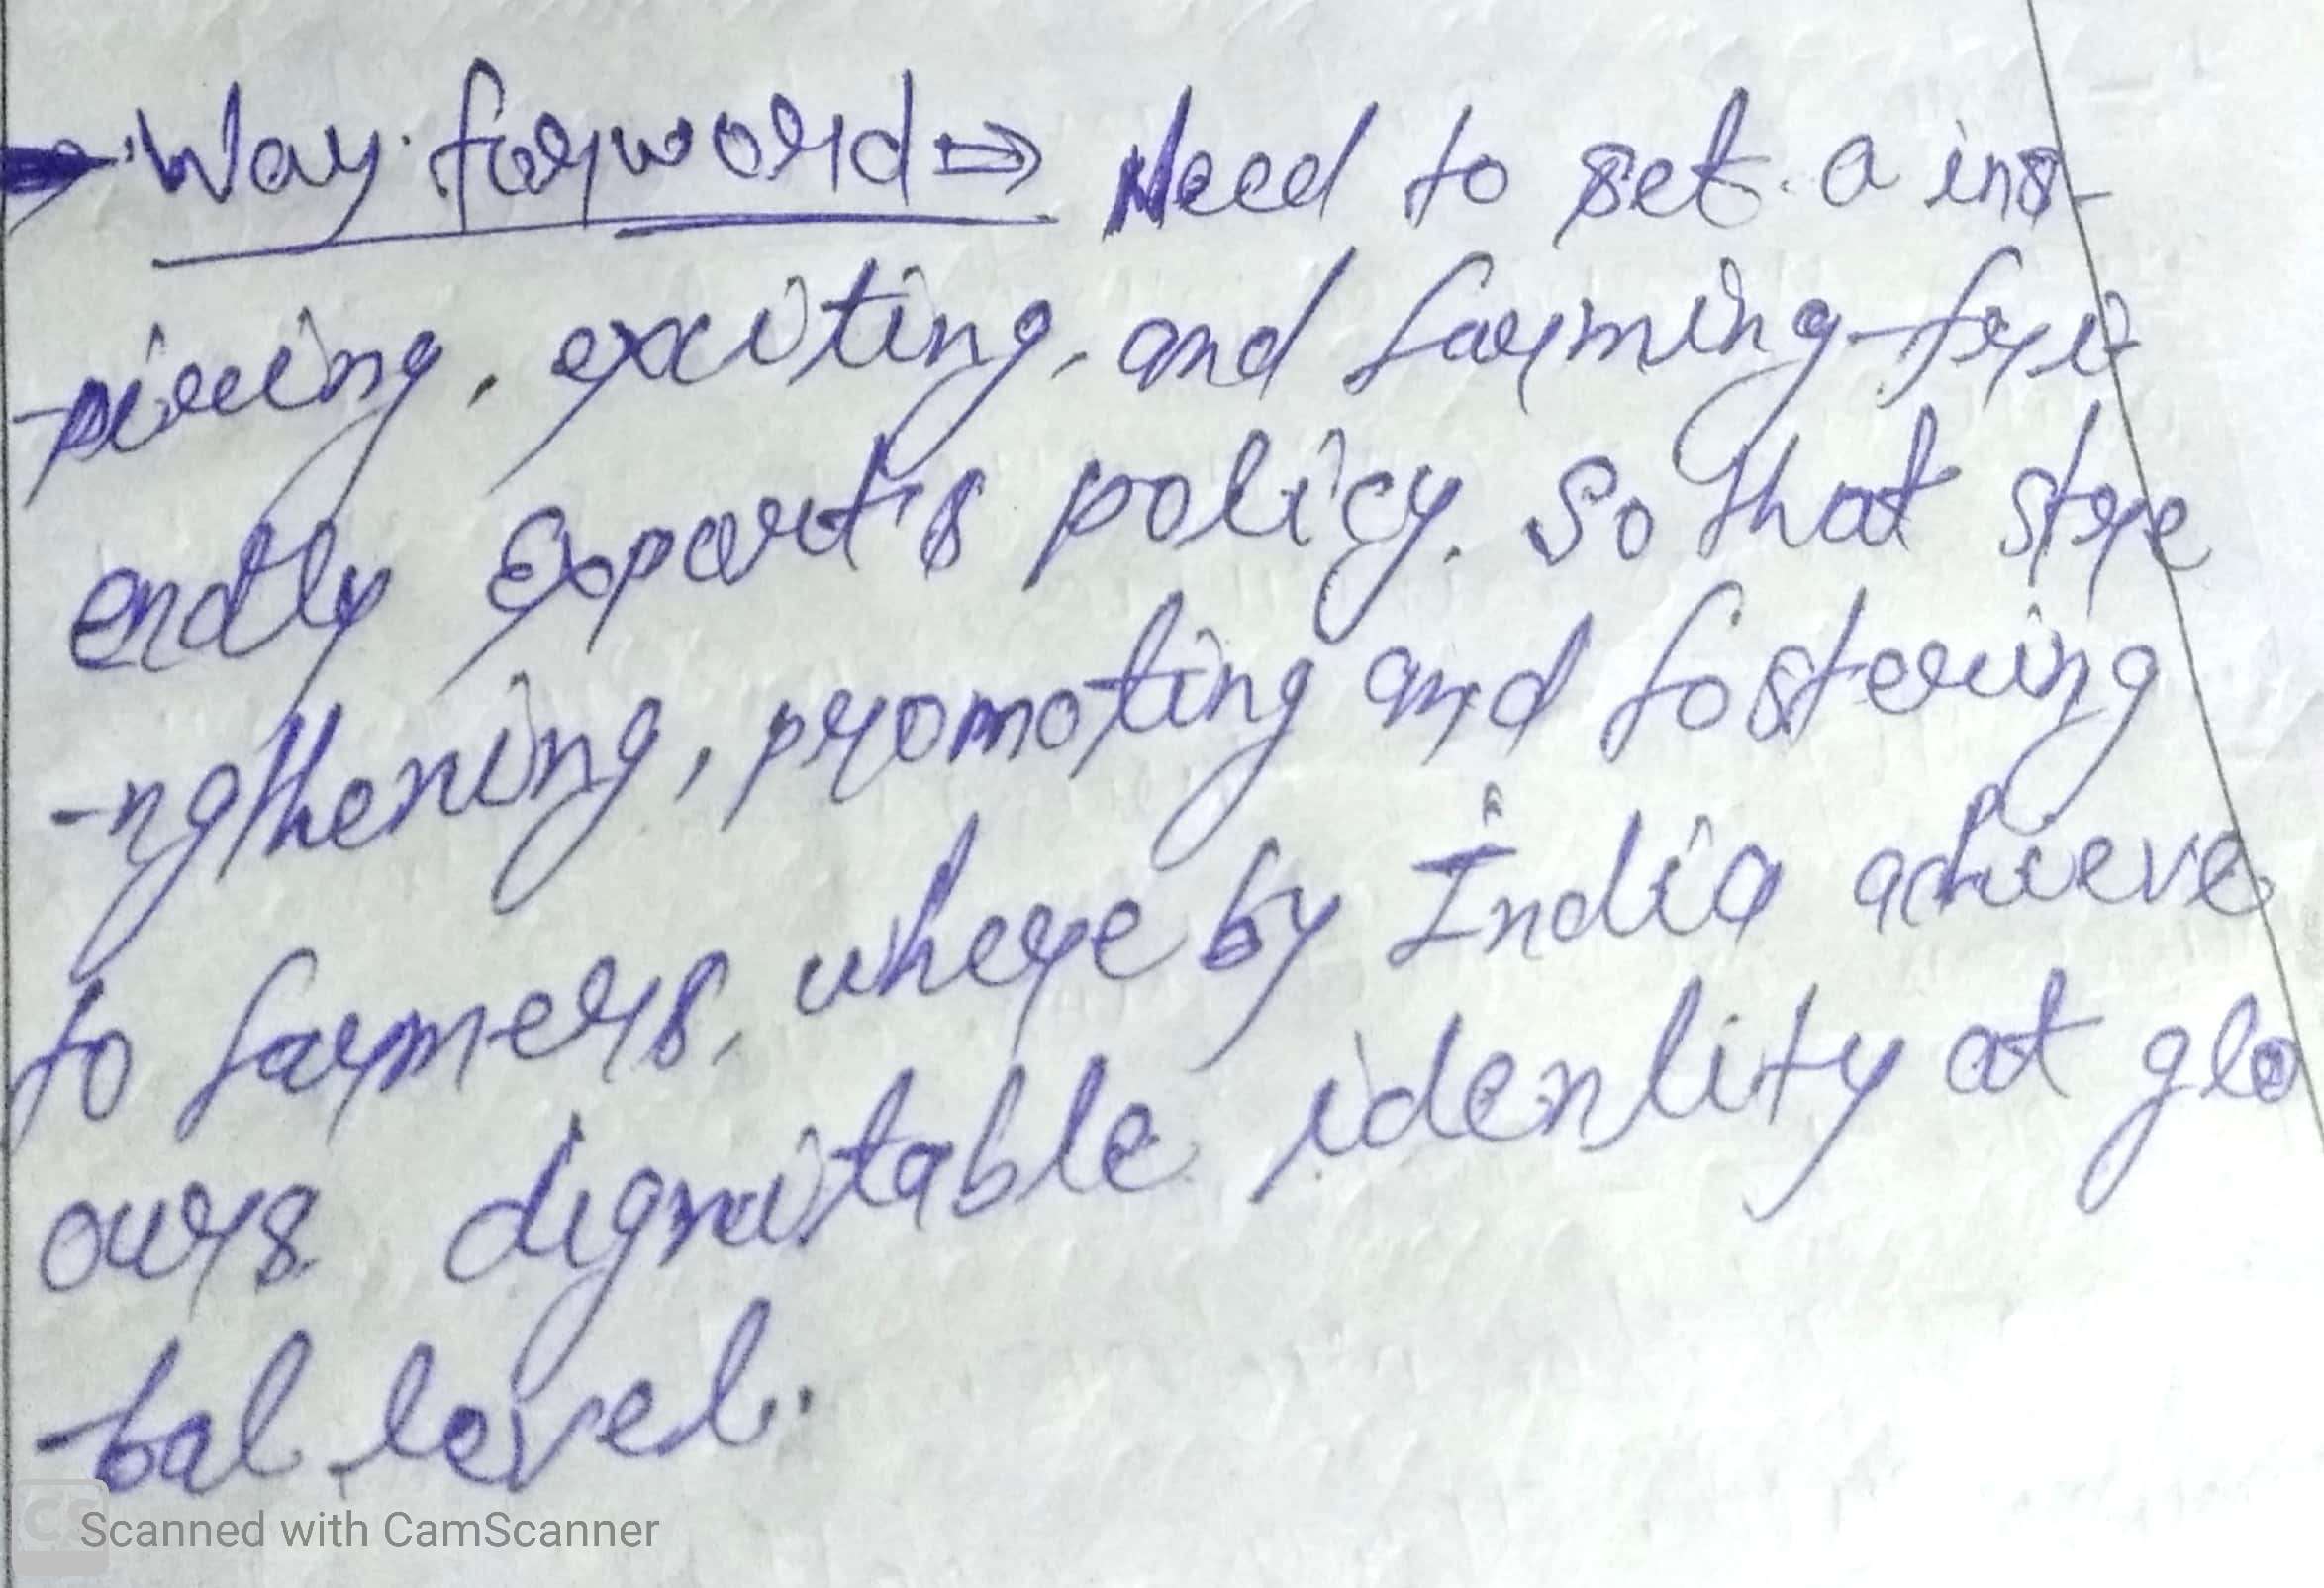 → Way forword ⇒ Need to set a ins-
-piring, exciting, and farming-fri
endly exports policy. So that stre
-ngthening, promoting and fostering
to farmers, where by India achieve
ours dignitable identity at glo
-bal level.
CS Scanned with CamScanner